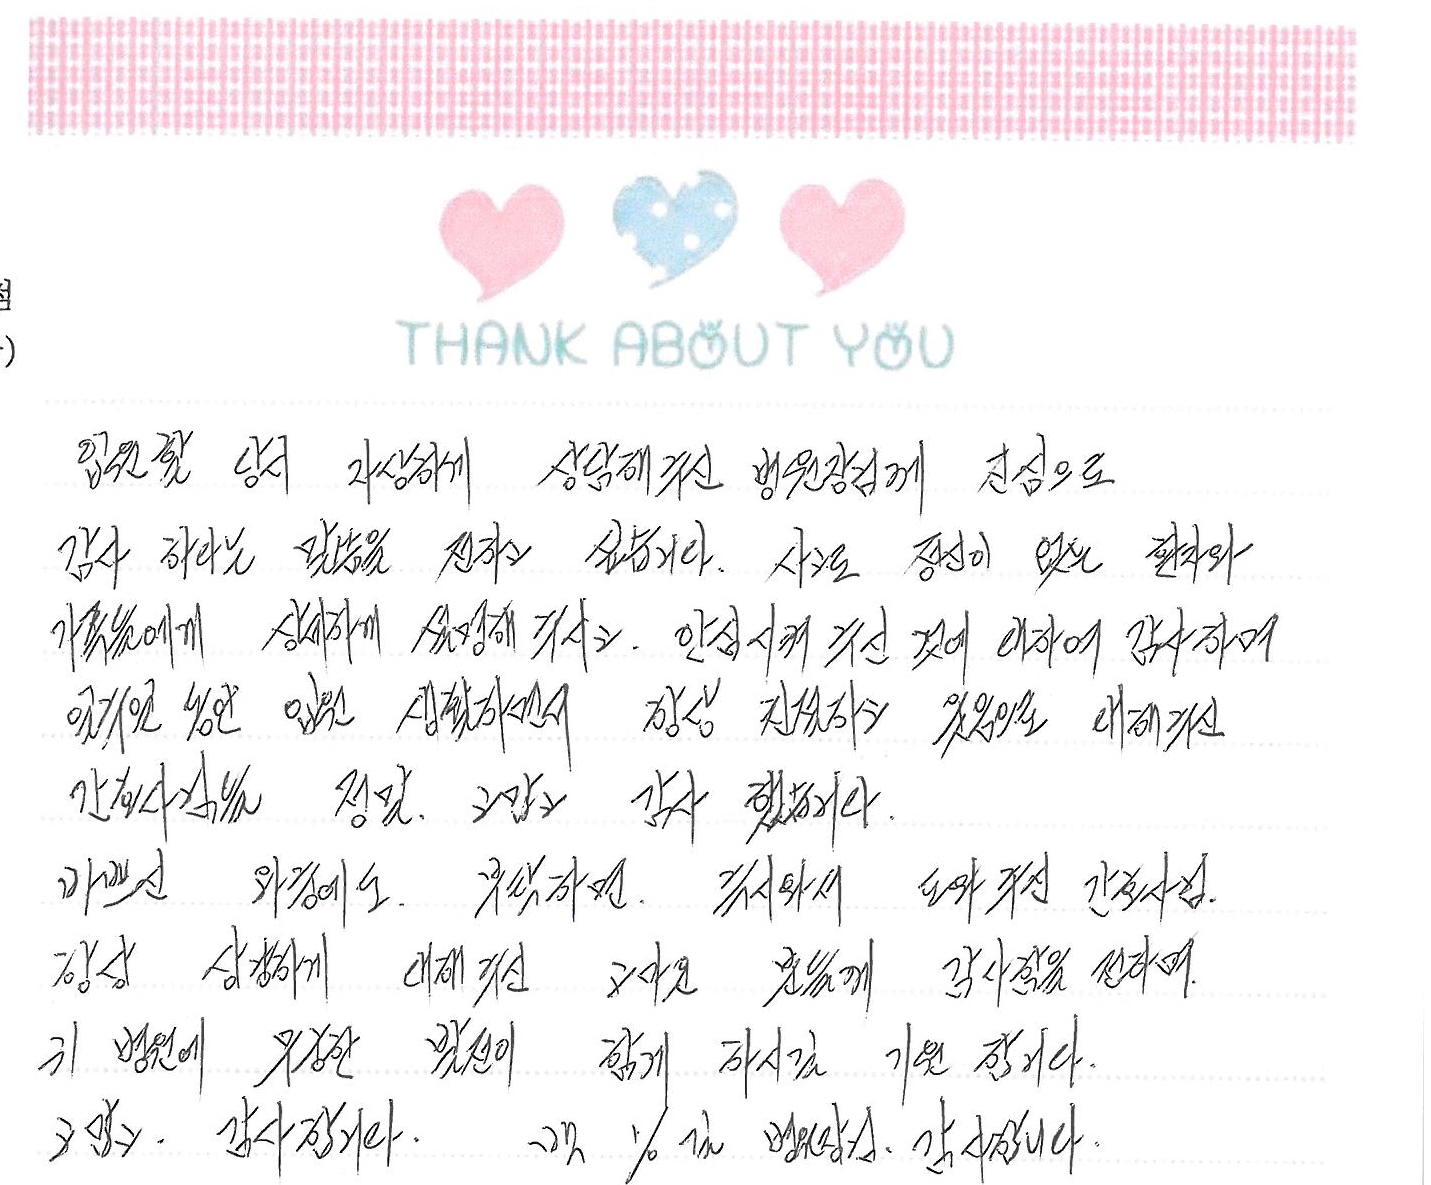 점
THANK ABOUT YOU
입원할 당시 자상하게 상담해 주신 병원장님께 진심으로
감사 하다는 말씀을 전하고 싶습니다. 사고로 정신이 없는 환자와
가족들에게 상세하게 설명해 주시고. 안심시켜 주신 것에 대하여 감사하며
일주일 동안 입원 생활하면서 항상 친절하고 웃음으로 대해주신
간호사님들 정말. 고맙고 감사 했습니다.
바쁘신 와중에도. 부탁하면. 즉시와서 도와 주신 간호사님.
항상 상냥하게 대해 주신 고마운 분들께 감사함을 전하며.
귀 병원에 무궁한 발전이 함께 하시길 기원 합니다.
고맙고. 감사합니다. 병원장님. 감사합니다.